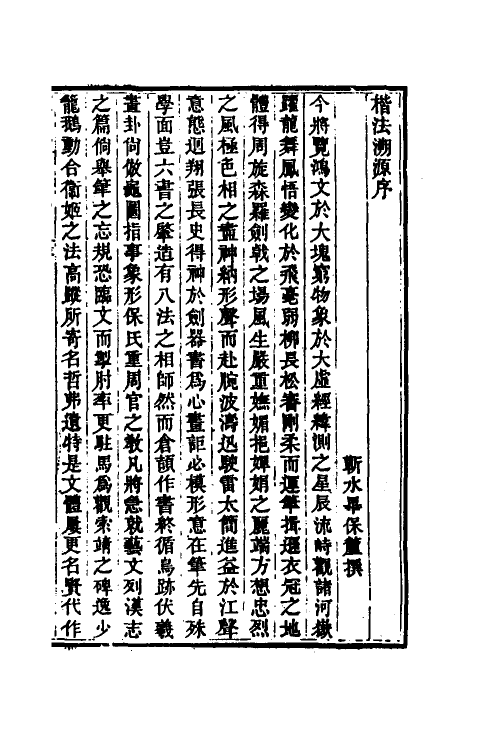 楷法溯源序
蘄水畢保釐撰
今將覽鴻文於大塊窮物象於大虛經緯測之星辰流峙觀諸河嶽
躍龍舞鳳悟變化於飛毫弱柳長松審剛柔而運筆揖遜衣冠之地
體得周旋森羅劍戟之場風生嚴重嫵媚挹嬋娟之麗端方想忠烈
之風極色相之盡神納形聲而赴腕波濤迅駛雷太簡進益於江聲
意態迴翔張長史得神於劍器書為心畫詎必模形意在筆先自殊
學面豈六書之肇造有八法之相師然而倉頡作書終循鳥跡伏羲
畫卦尙倣龜圖指事象形保氏重周官之敎凡將急就藝文列漢志
之篇倘舉筆之忘規恐臨文而掣肘率更駐馬為觀索靖之碑逸少
籠鵝動合衞姬之法高蹤所寄名哲弗遺特是文體屢更名賢代作